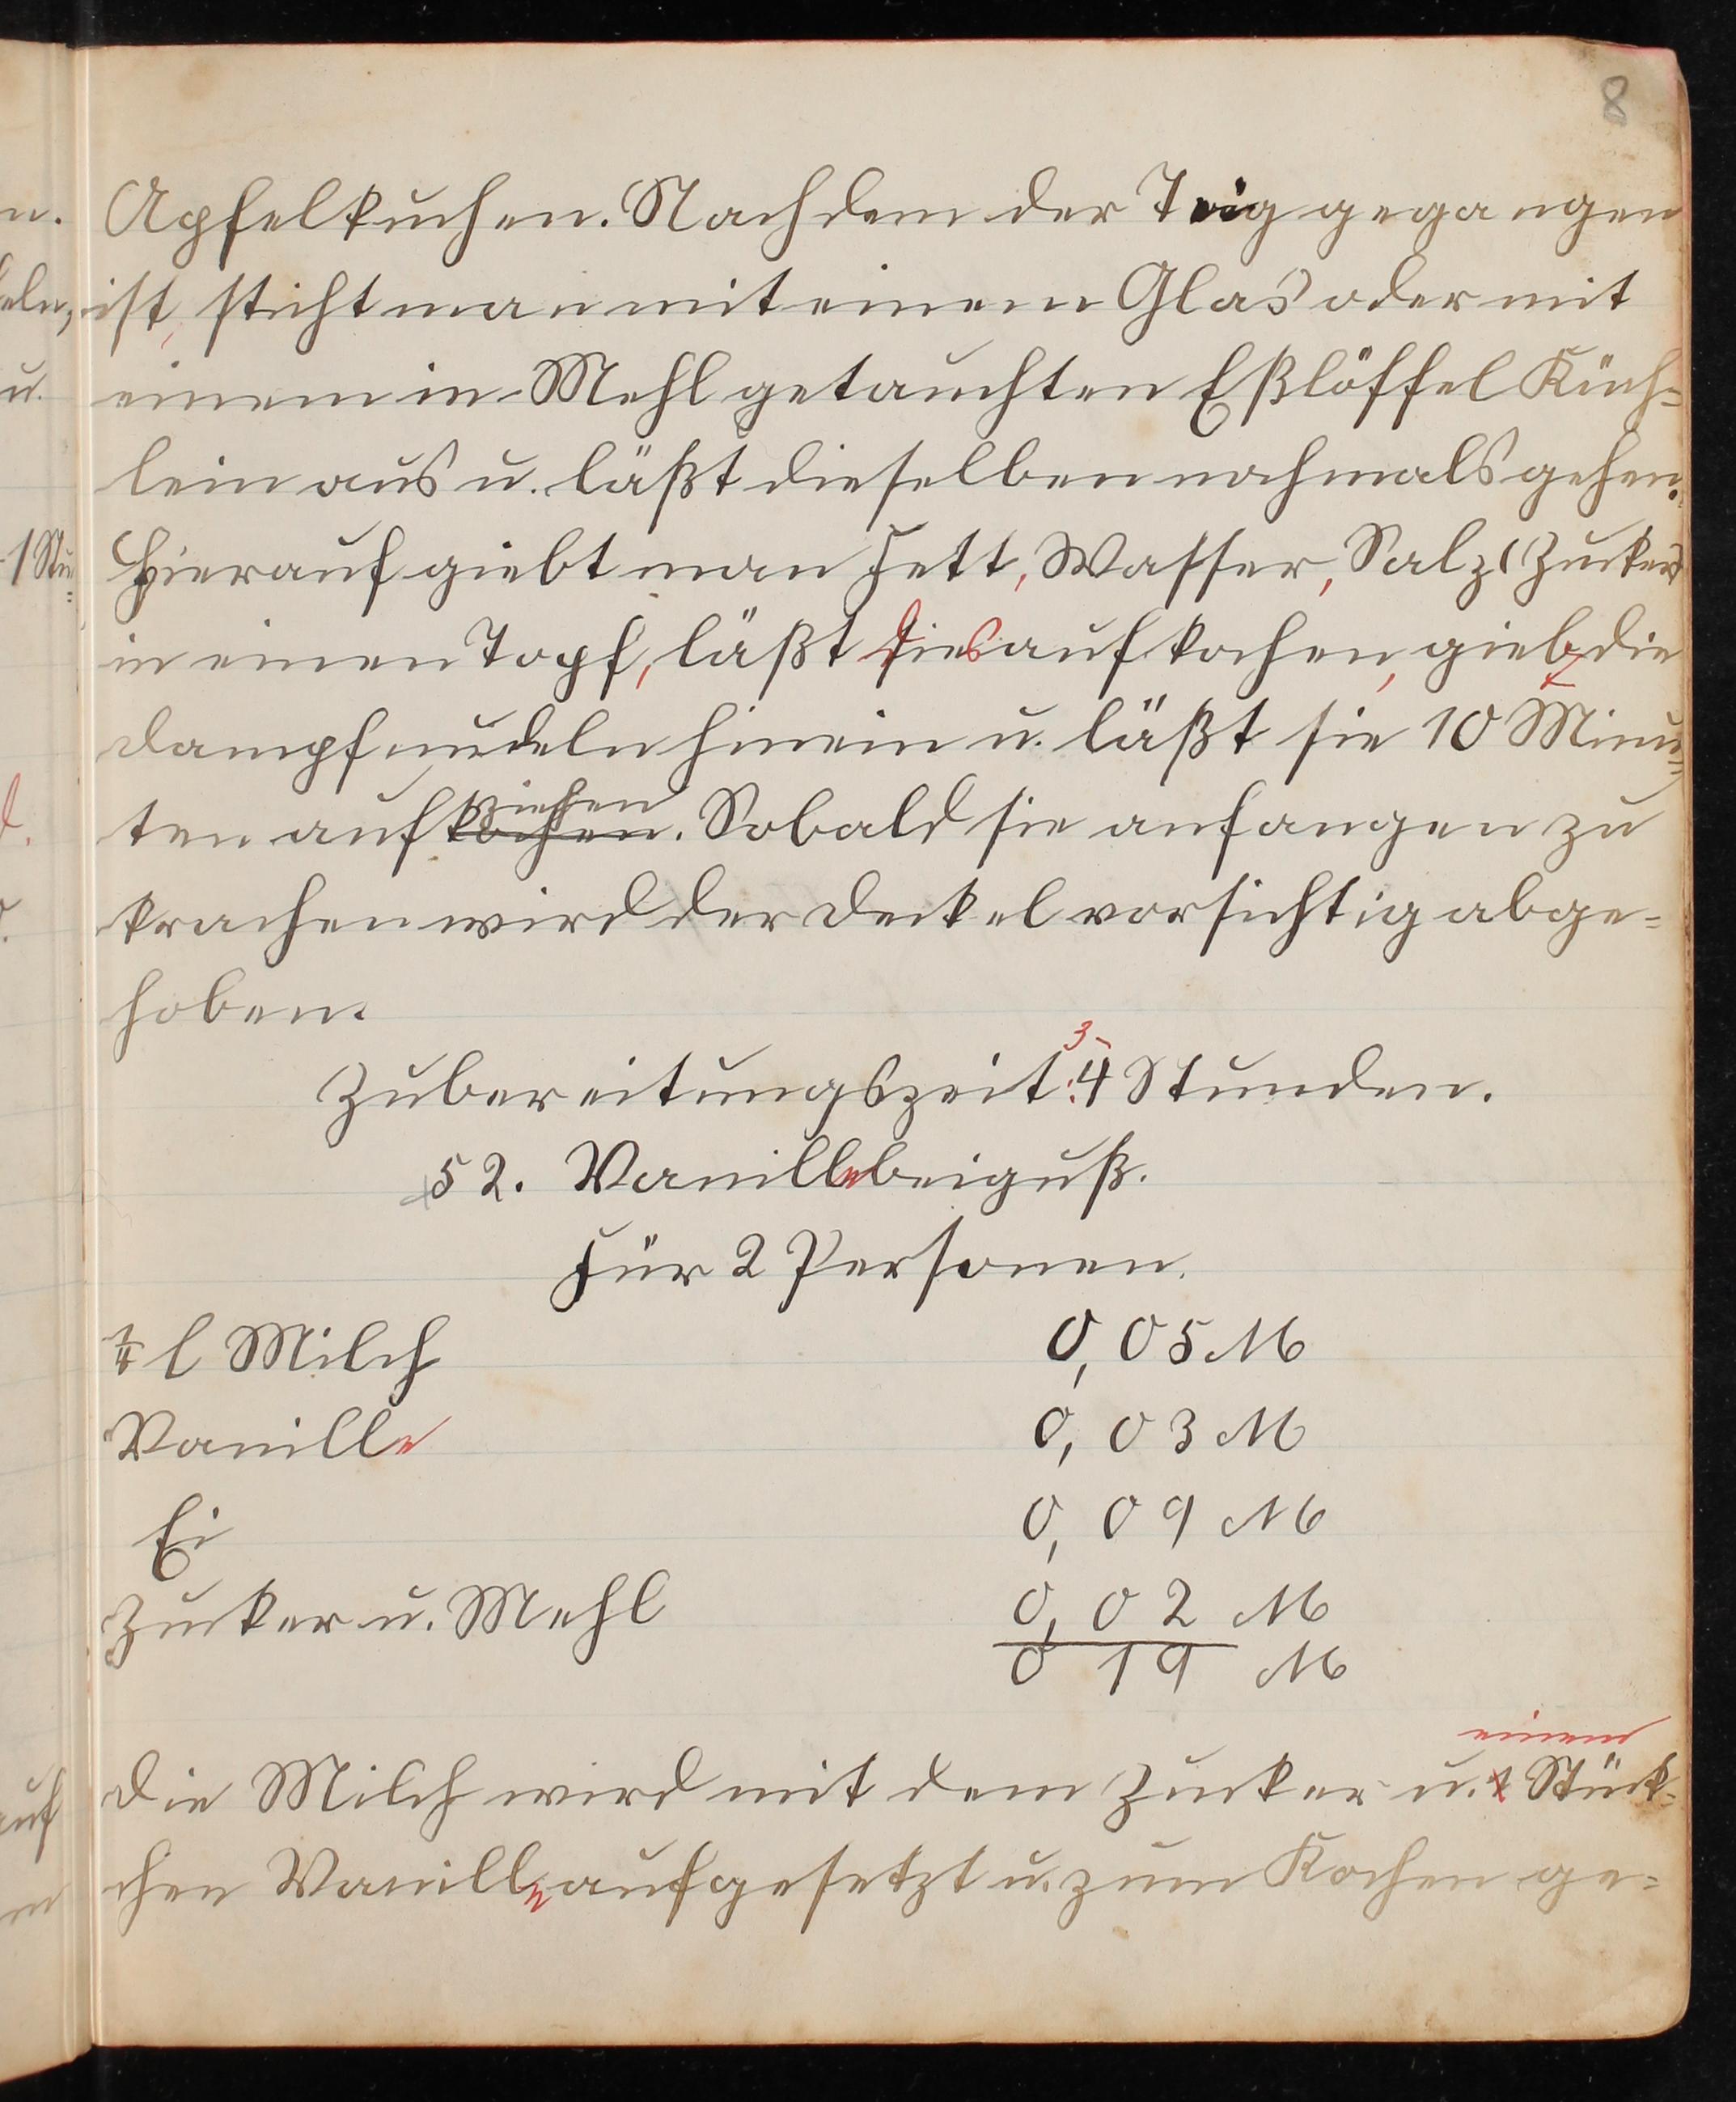 8
Apfelkuchen. Nachdem der Teig gegangen
ist, sticht man mit einem Glas oder mit
einem in Mehl getauchten Eßlöffel Küch=
lein aus u. läßt dieselben nochmals gehen.
Hierauf giebt man Fett, Wasser, Salz (Zucker)
in einen Topf, läßt dies aufkochen, giebt die
Dampfnudeln hinein u. läßt sie 10 Minu=
ziehen
ten aufkochen. Sobald sie anfangen zu
krachen wird der Deckel vorsichtig abge=
hoben.
3-
Zubereitungszeit: 4 Stunden.
52. Vanillebeiguß.
Für 2 Personen.
1/4 l Milch 0,05 M
Vanille 0,03 M
Ei 0,09 M
Zucker u. Mehl 0,02 M
0 19 M
einem
Die Milch wird mit dem Zucker u. 1 Stück=
chen Vanille aufgesetzt u. zum Kochen ge=
n.
eln,
u.
1 Stu=
d.
auf